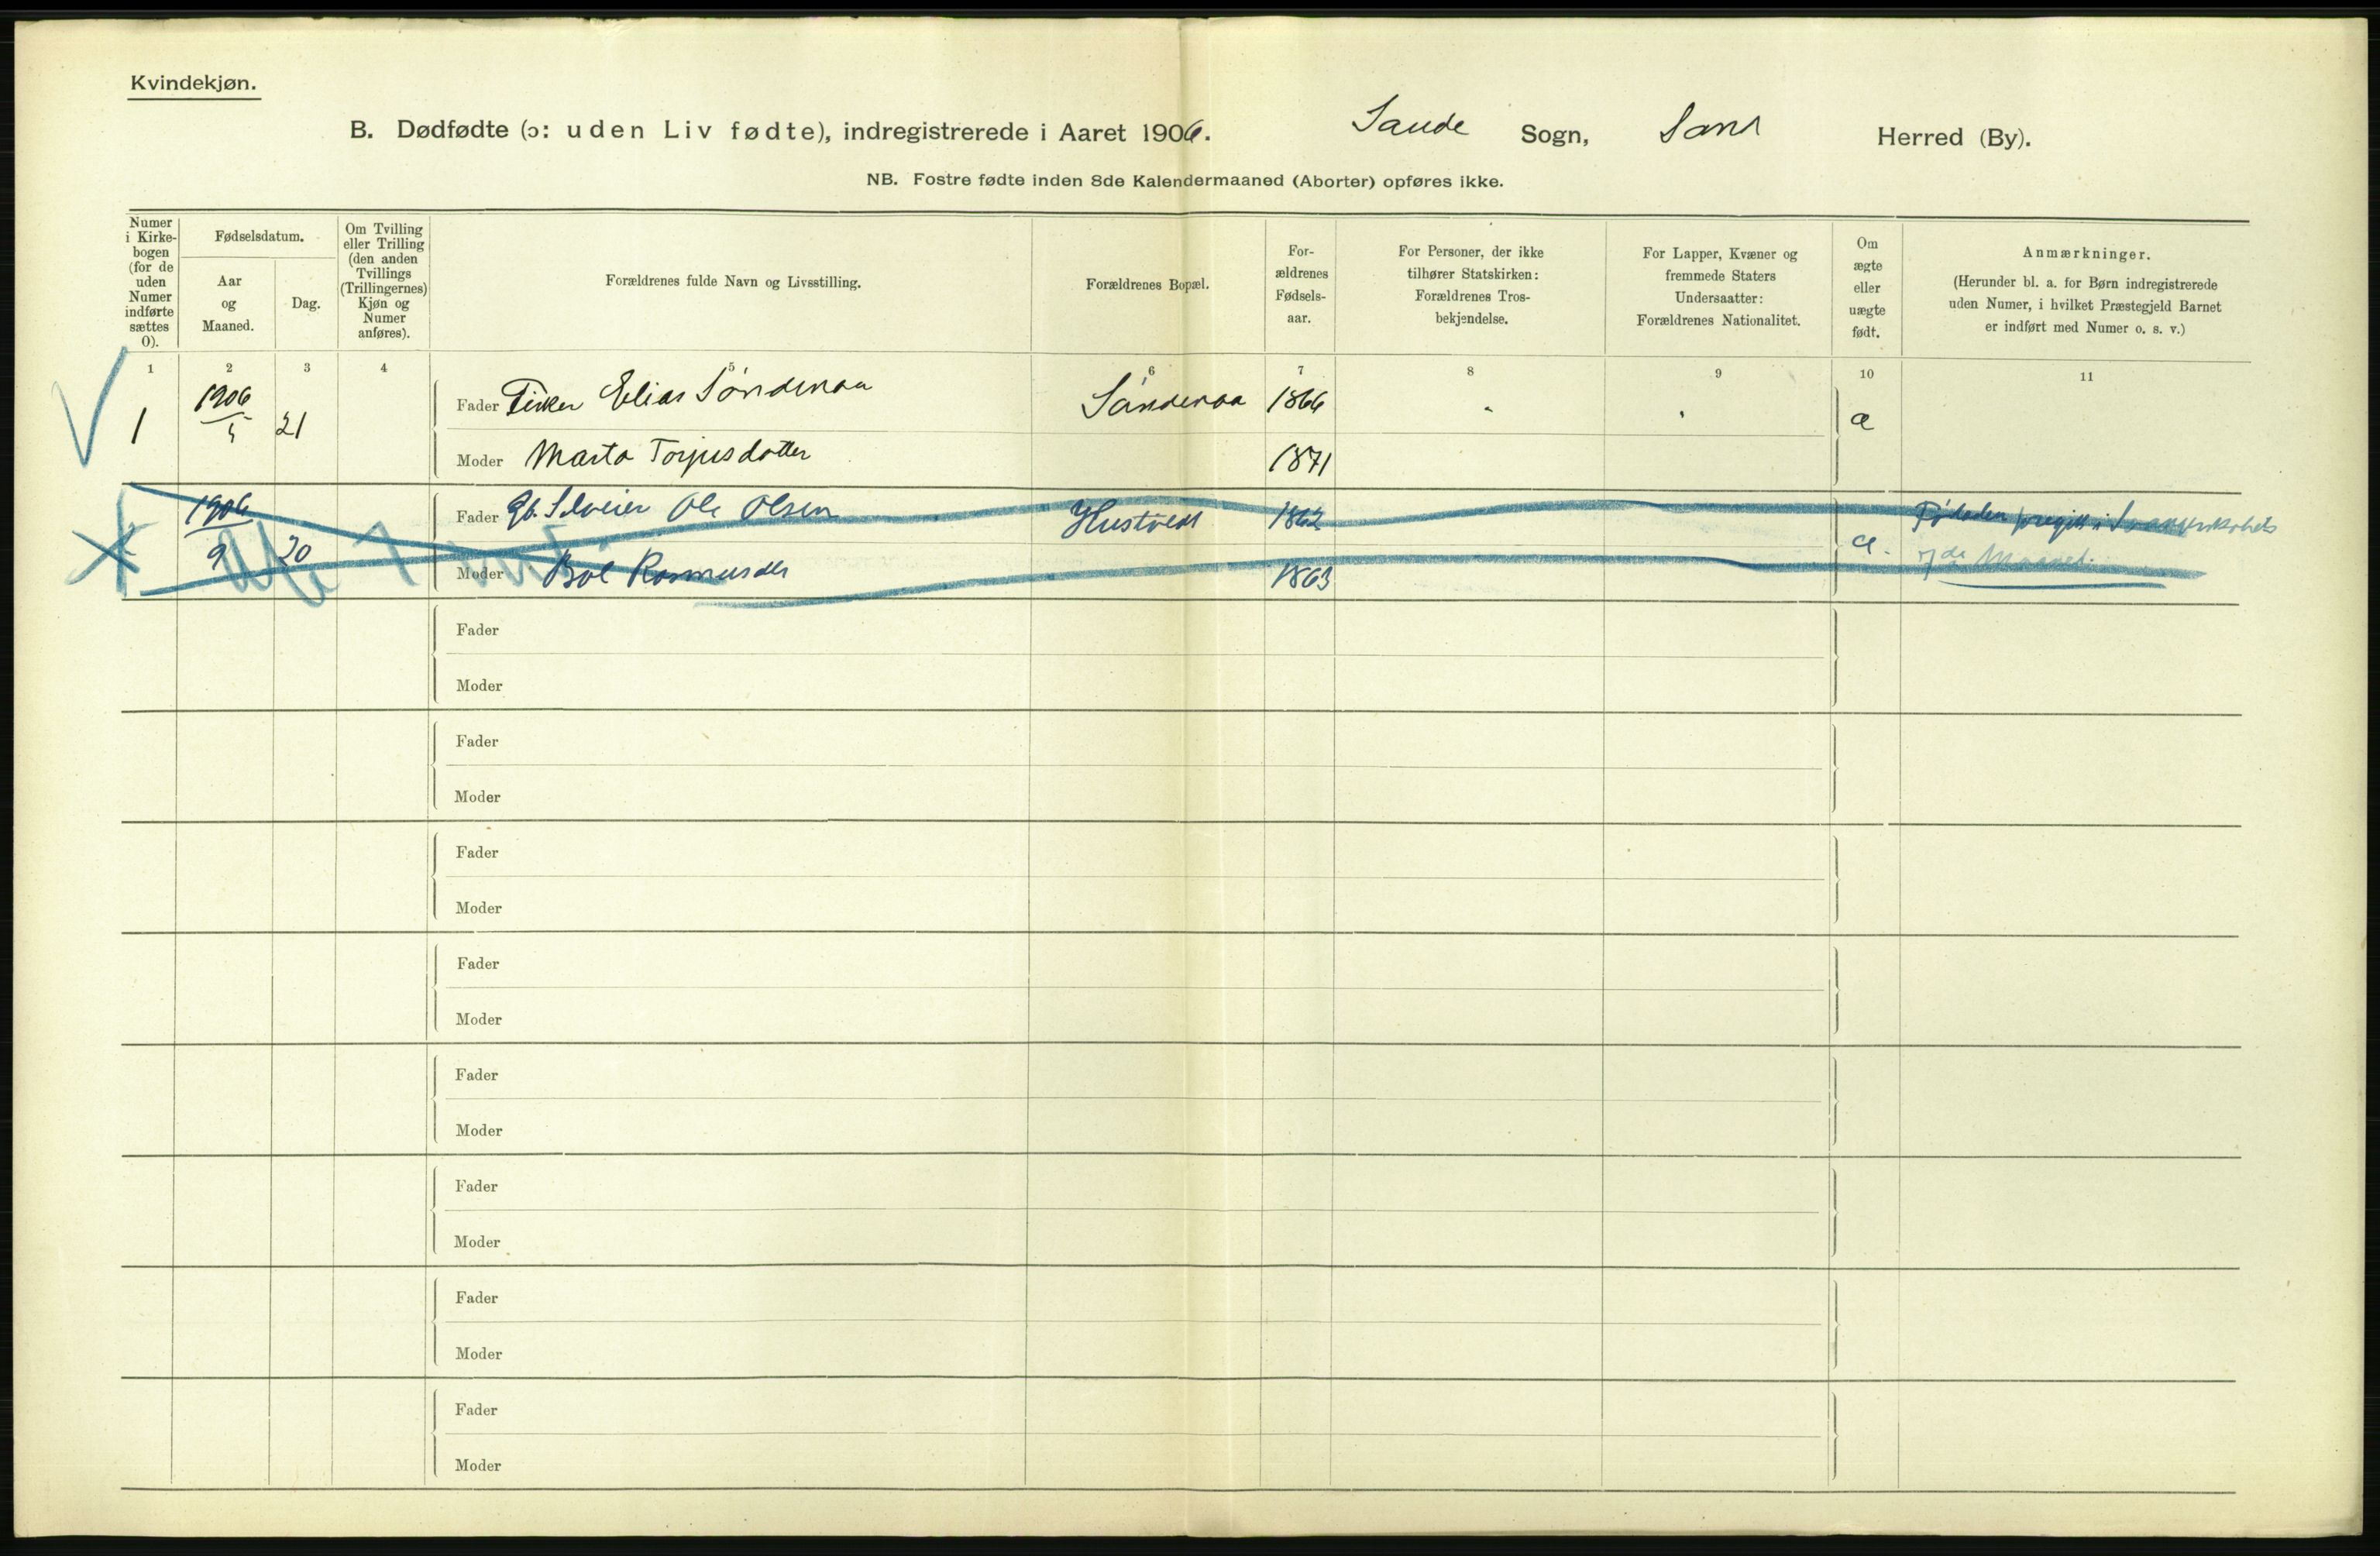 Kvindekjøn.
B. Dødfødte (ɔ: uden Liv fødte), indregistrerede i Aaret 1906. Saude Sogn, Sand Herred (By).
NB. Fostre fødte inden 8de Kalendermaaned (Aborter) opføres ikke.
Numer i Kirkebogen (for de uden Numer indførte sættes 0).
Fødselsdatum.
Aar og Maaned.
Dag.
Om Tvilling eller Trilling (den anden Tvillings (Trillingernes) Kjøn og Numer anføres).
Forældrenes fulde Navn og Livsstilling.
Forældrenes Bopæl.
Forældrenes Fødselsaar.
For Personer, der ikke tilhører Statskirken: Forældrenes Trosbekjendelse.
For Lapper, Kvæner og fremmede Staters Undersaatter: Forældrenes Nationalitet.
Om ægte eller uægte født.
Anmærkninger.
(Herunder bl. a. for Børn indregistrerede uden Numer, i hvilket Præstegjeld Barnet er indført med Numer o. s. v.)
1 2 3 4 5 6 7 8 9 10 11
1 1906 5 21 Fader Elias Søndenaa Søndenaa 1866 " " æ
Moder Marta Torjusdatter 1871
1906 9 20 Fader Gb. Selveier Ole Olsen Hustvedt 1862 æ. Fødselen foregik i Svangerskabets
Moder Bol Rasmusdtr 1863 7de Maaned.
Fader
Moder
Fader
Moder
Fader
Moder
Fader
Moder
Fader
Moder
Fader
Moder
Fader
Moder
Fader
Moder